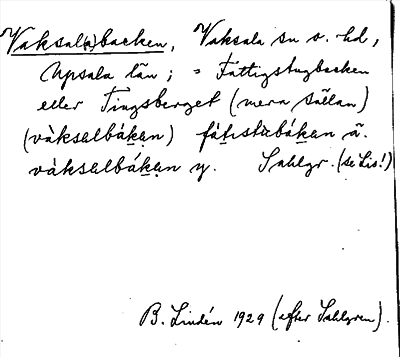 Vaksal(a)backen, Vaksala sn o. hd,
Upsala län; = Fattigstugbacken
eller Tingsberget (mera sällan)
(vàksalbákan) fàtistubákan ä.
vàksalbákan y. Sahlgr. (se Lis!)
B. Lindén 1929 (efter Sahlgren).